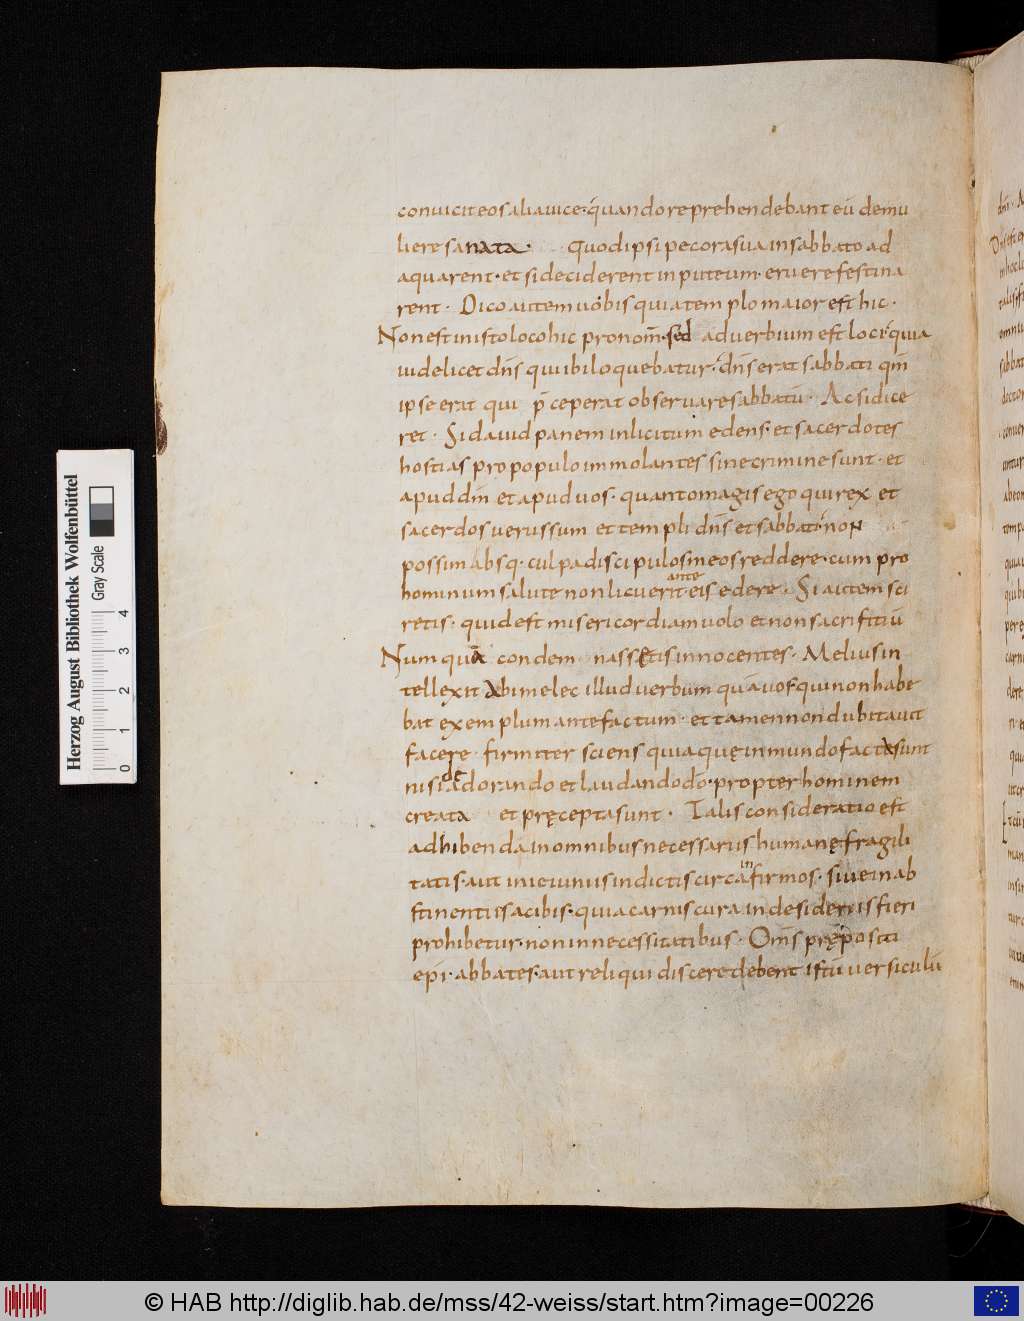 conuicit eos alia uice quando reprehendebant eū de mu
liere sanata. Quod ipsi pecora sua in sabbato ad
aquarent. et si deciderent in puteum. eruere festina
rent. Dico autem uobis quia templo maior est hic.
Non est in isto loco hic pronom̄. sed aduerbium est loci. quia
uidelicet dn̄s qui ibi loquebatur. dn̄s erat sabbati qm̄
ipse erat qui p̄ceperat obseruare sabbatū. Ac si dice
ret. Si dauid panem inlicitum edens. et sacerdotes
hostias pro populo immolantes sine crimine sunt. et
apud dm̄ et apud uos. quanto magis ego qui rex et
sacerdos uerus sum et templi dn̄s et sabbati non
possim absq. culpa discipulos meos reddere. cum pro
hominum salute non licuerit ante eis edere. Si autem sci
retis. quid est misericordiam uolo et non sacrifitiū
Numquā condemnassetis innocentes. Melius in
tellexit abimelec illud uerbum quā uos. qui non habe
bat exemplum ante factum. et tamen non dubitauit
facere firmiter sciens quia quę in mundo facta sunt
nisi de adorando et laudando dō. propter hominem
creata et pręcepta sunt. Talis consideratio est
adhibenda in omnibus necessariis humanę fragili
tatis. aut in ieiuniis indictis circa infirmos. siue in ab
stinentiis a cibis. quia carnis cura in desideriis fieri
prohibetur. non in necessitatibus. Om̄s prępositi
ep̄i. abbates. aut reliqui discere debent istū uersiculū
Herzog August Bibliothek Wolfenbüttel
Gray Scale
0 1 2 3 4
© HAB http://diglib.hab.de/mss/42-weiss/start.htm?image=00226